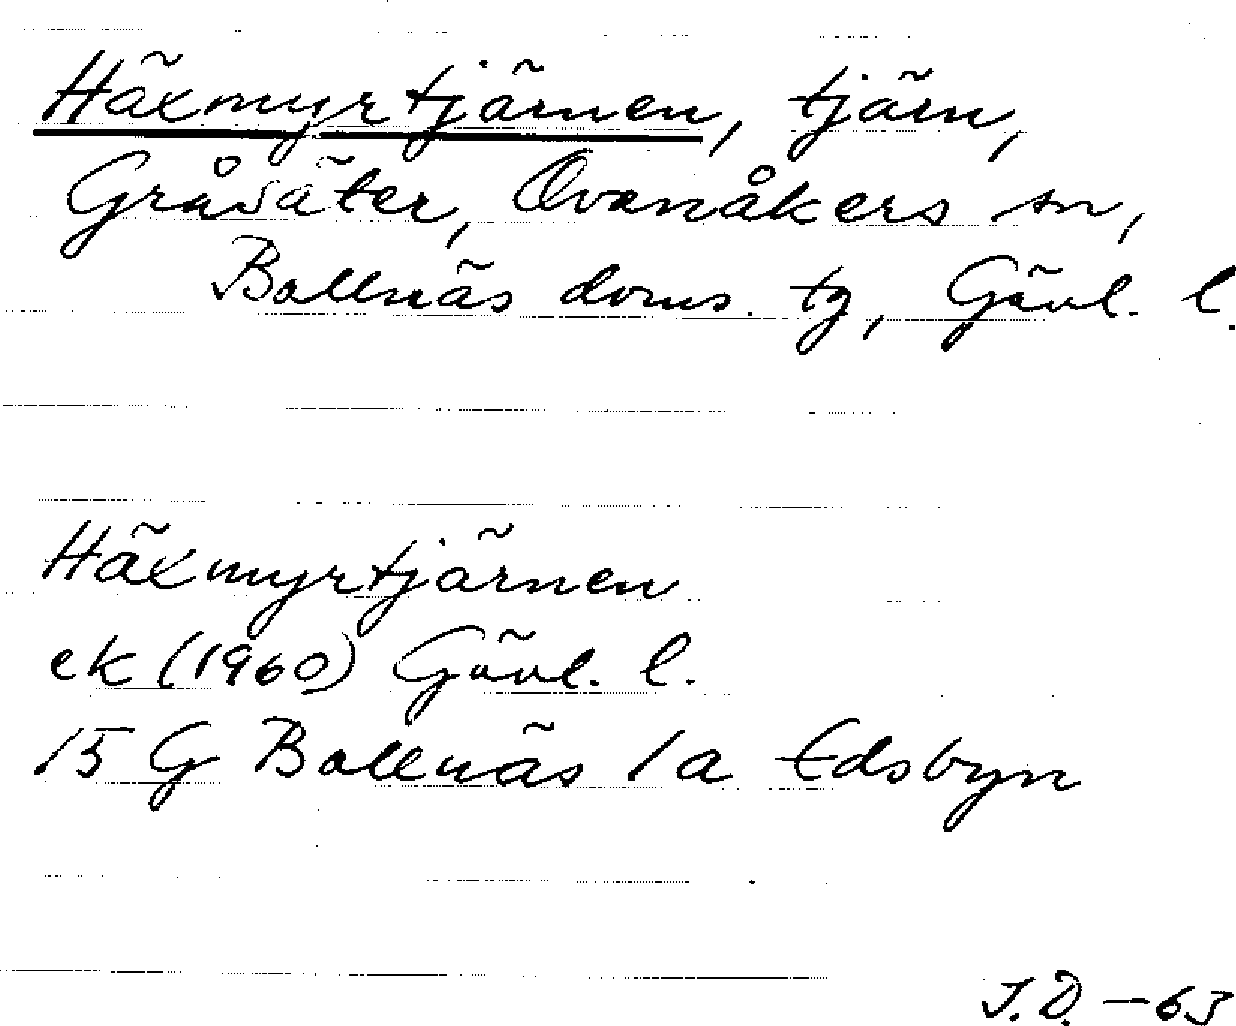 Häxmyrtjärnen, tjärn,
Gråsäter, Ovanåkers sn,
Bollnäs doms. tg, Gävl. l.
Häxmyrtjärnen
ek (1960) Gävl. l.
15 G Bollnäs 1a Edsbyn
J.D. – 63